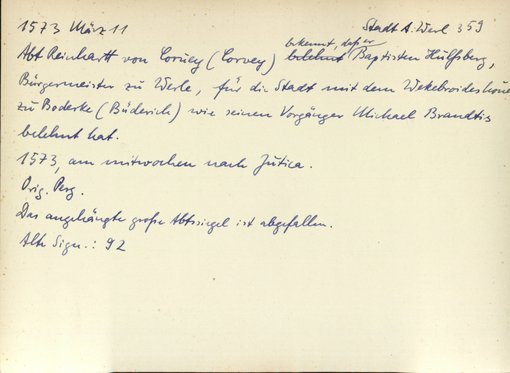 1573 März 11 Stadt A. Werl 359
Abt Reinhartt von Coruey (Corvey) bekennt, daß er Baptisten Hülfsberg,
Bürgermeister zu Werle, für die Stadt mit dem
zu Boderke (Büderich) wie seinen Vorgänger Michael Brandtis
belehnt hat.
1573, am mitwochen nach Jutica.
Orig. Perg.
Das angehängte große Abtssiegel ist abgefallen.
Alte Sign.: 92